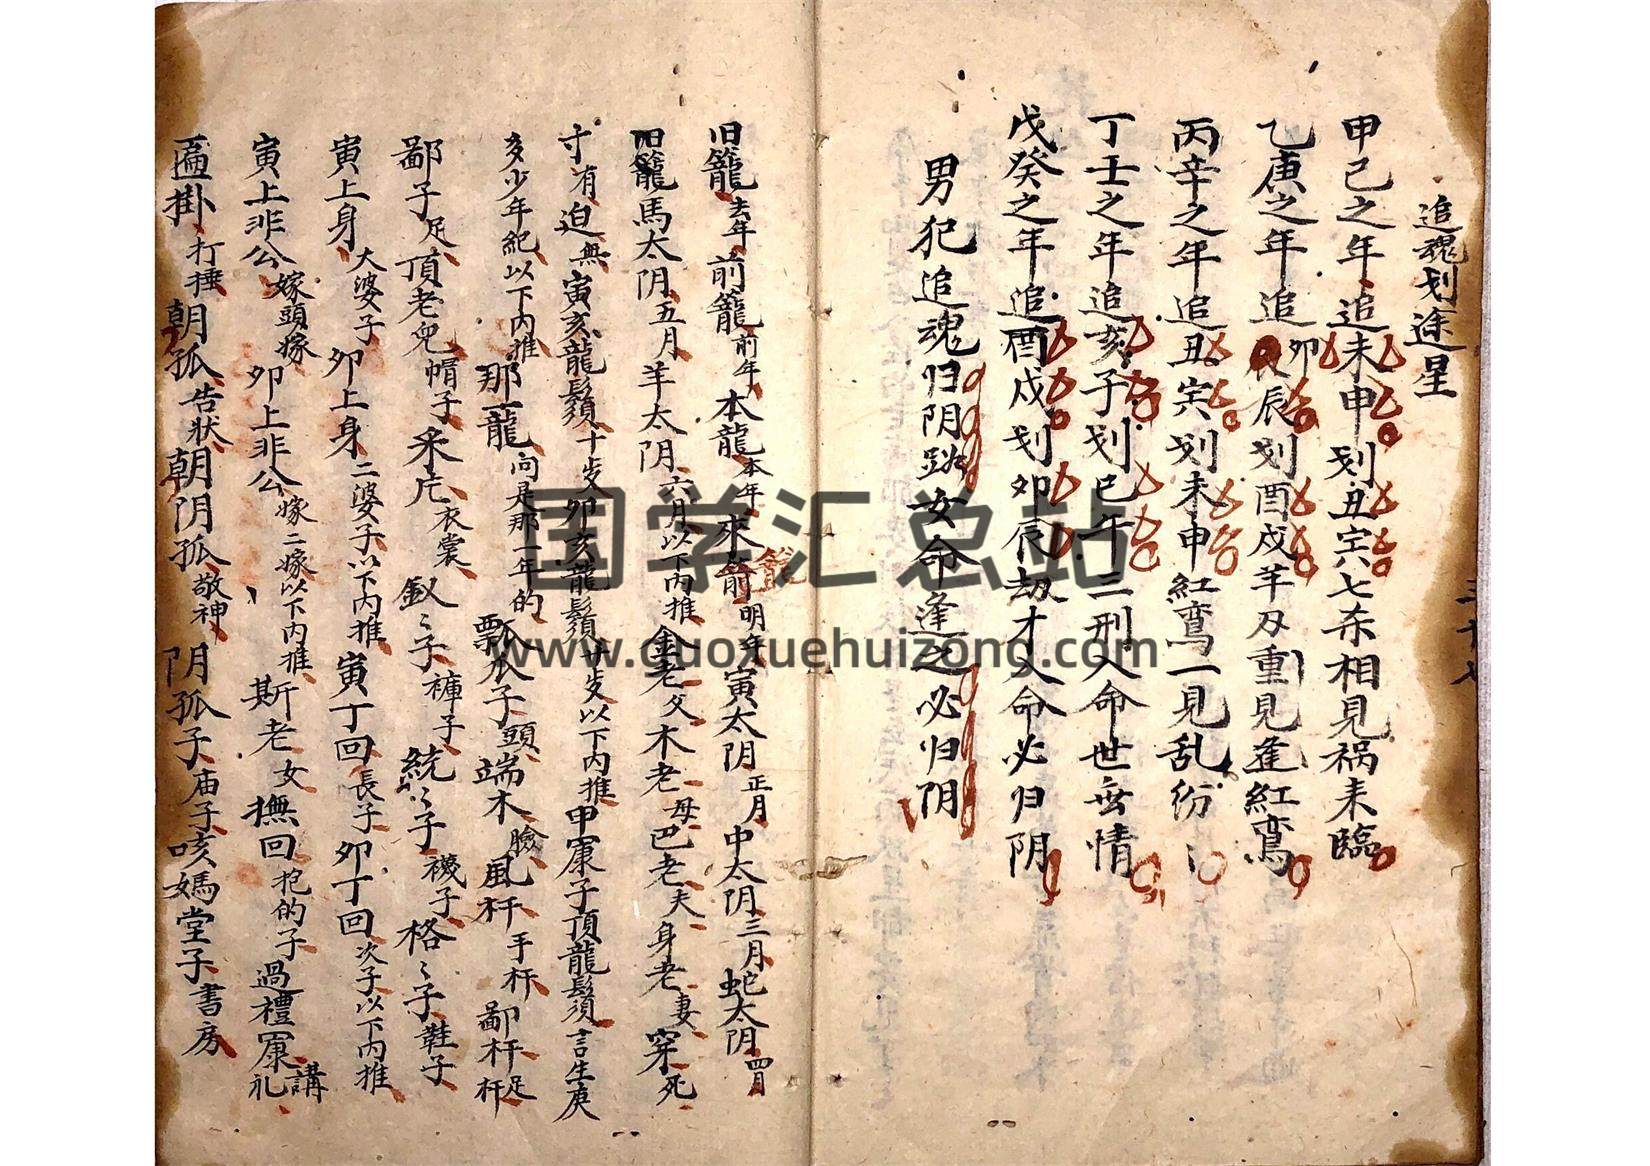 追魂划途星
甲己之年追未申划丑寅七杀相見祸来臨
乙庚之年追卯辰划酉戌羊刃重見逢紅鸾
丙辛之年追丑寅划未申紅鸾一見乱纷纷
丁壬之年追亥子划巳午三刑入命世無情
戊癸之年追酉戌划卯辰劫才入命必归阴
男犯追魂归阴路女命逢之必归阴
旧籠去年前籠前年本龍本年來龍明年寅太阴正月中太阴三月蛇太阴四月
旧籠馬太阴五月羊太阴六月以下内推金老父木老母巴老夫身老妻穿死
寸有迫無寅亥龍鬚十歩卯亥龍鬚廿歩以下内推甲寅子頂龍鬚言生庚
多少年紀以下内推那一龍问是那一年的瓢瓜子頭端木臉風杆手杆鄙杆足杆
鄙子足頂老兒帽子采片衣裳釵〻子褲子統〻子襪子格〻子鞋子
寅上身大婆子卯上身二婆子以下内推寅丁回長子卯丁回次子以下内推
寅上非公嫁頭嫁卯上非公嫁二嫁以下内推斯老女撫回抱的子過禮寡講礼
匾掛打捶朝孤告狀朝阴孤敬神阴孤子庙子咳媽堂子書房
国学汇总站
www.guoxuehuizong.com